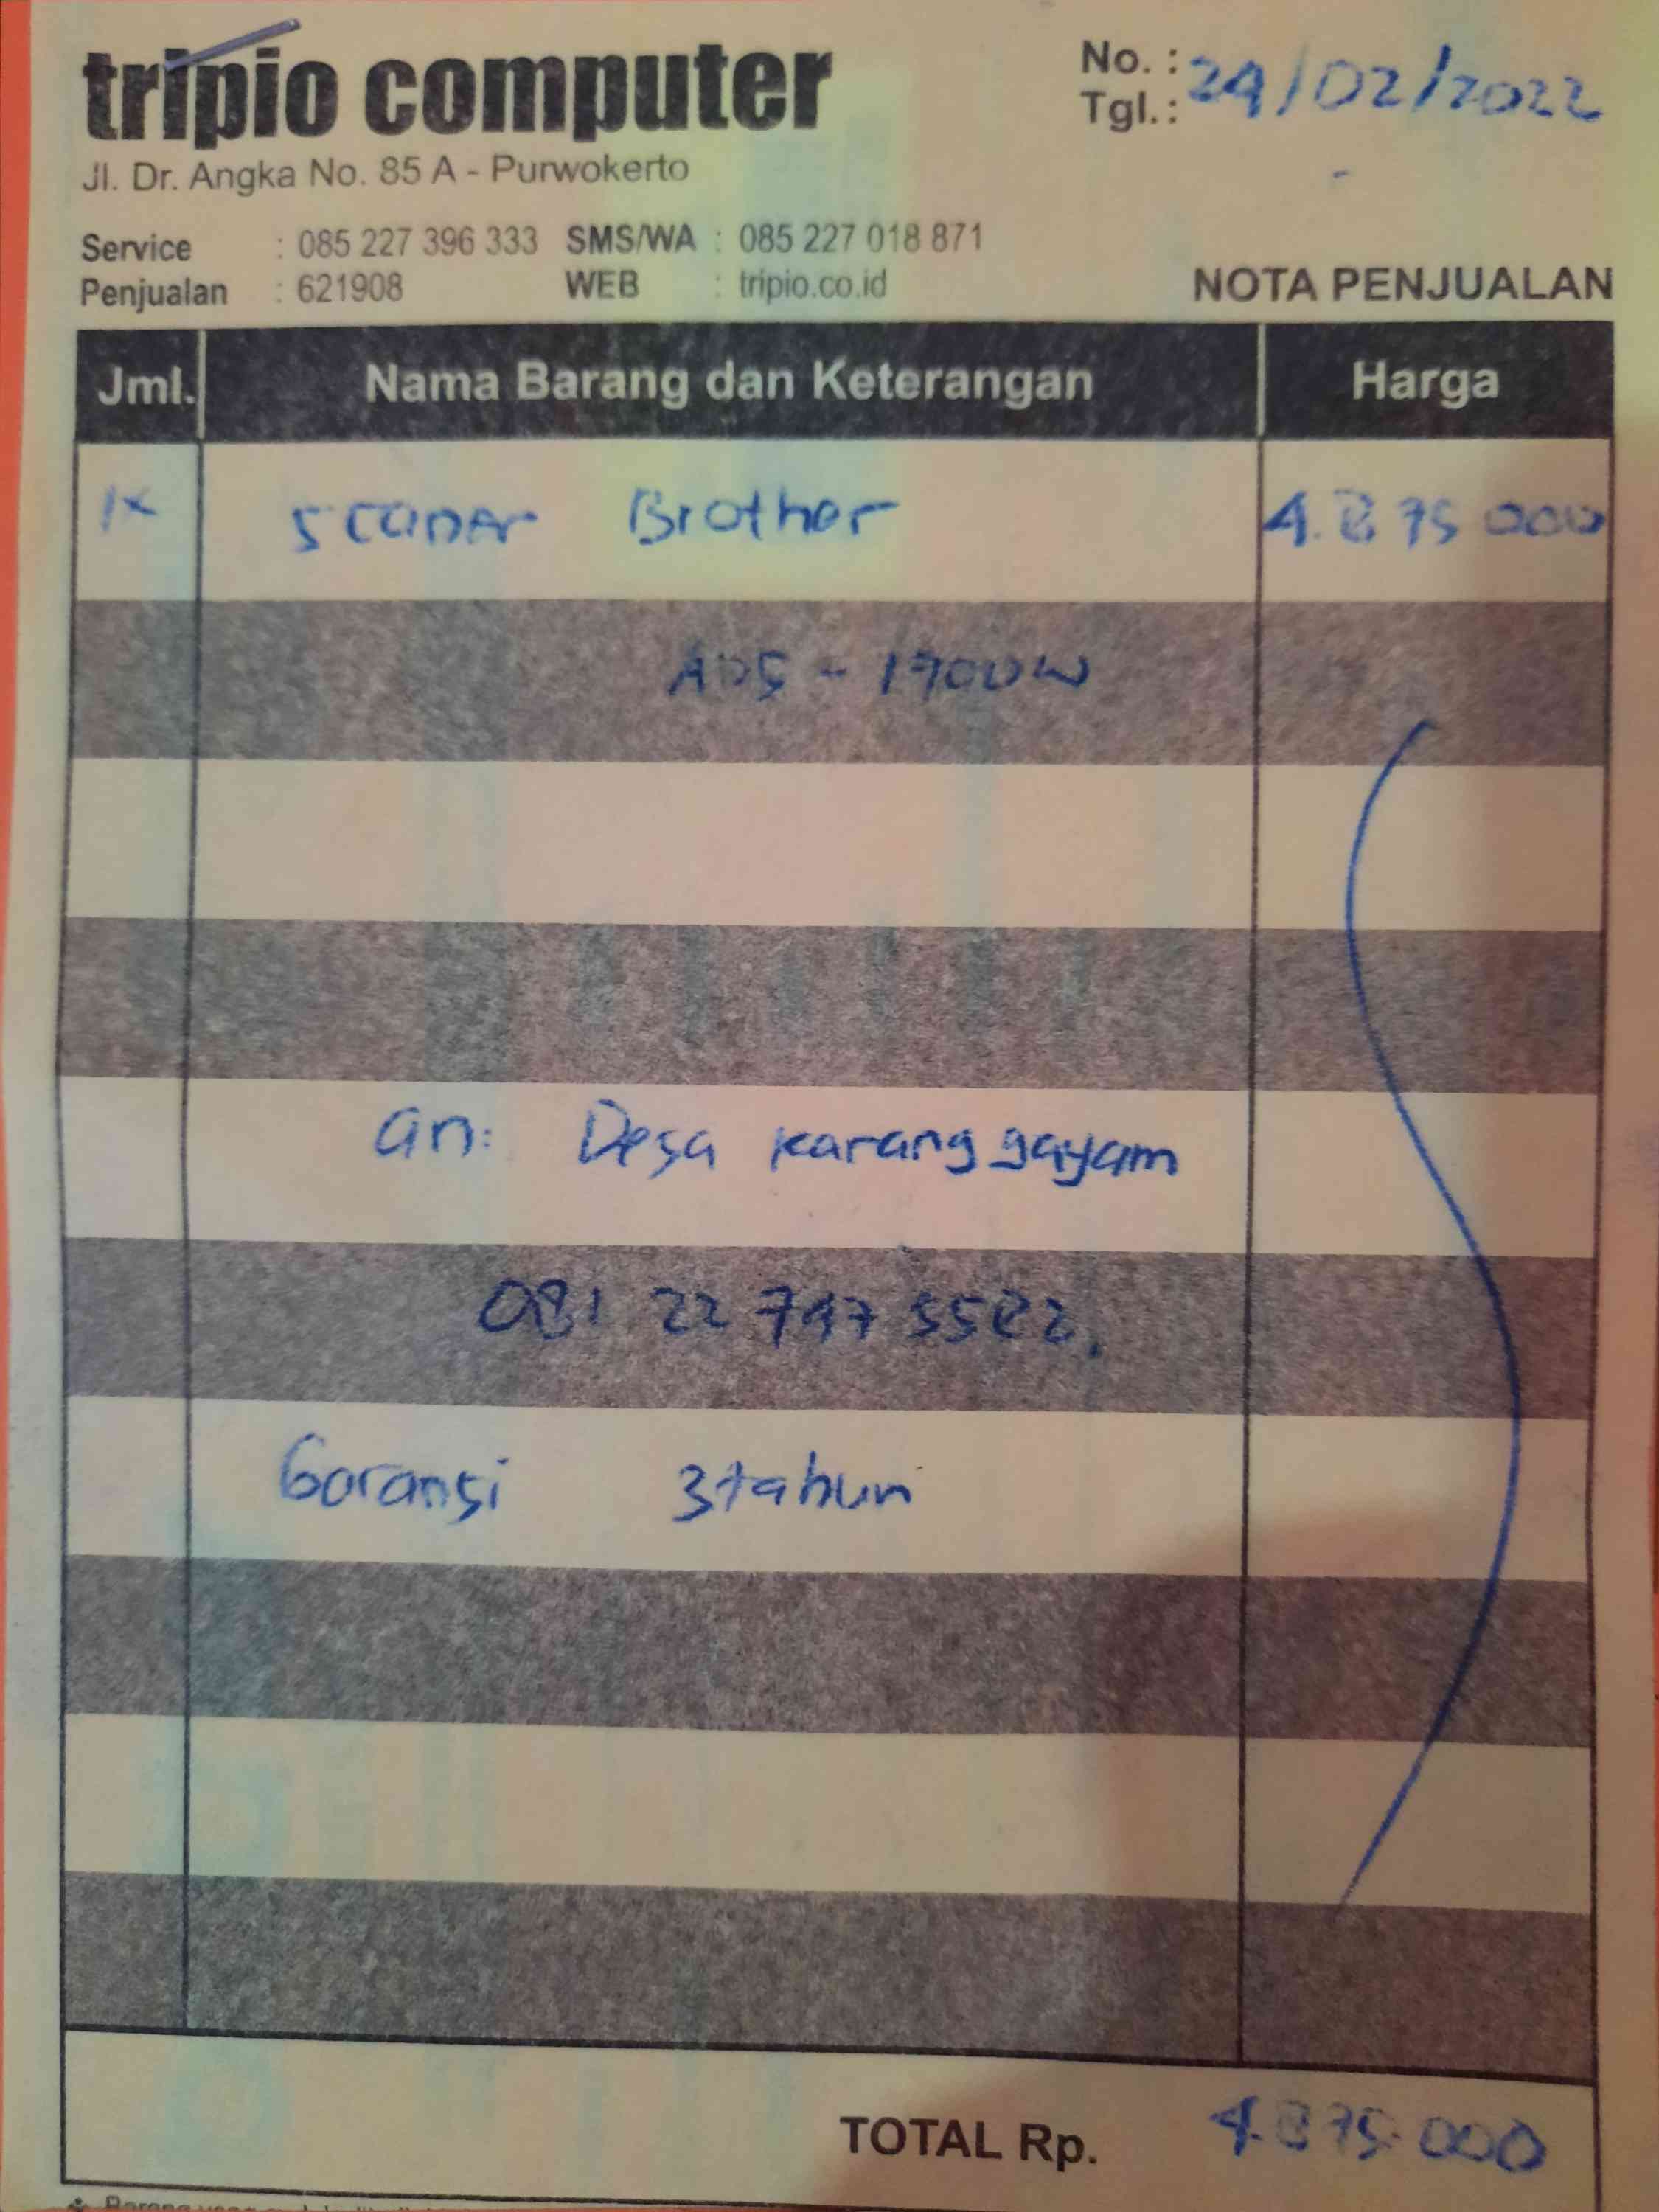 tripio computer
Jl. Dr. Angka No. 85 A - Purwokerto
No. :
Tgl. : 24/02/2022
Service : 085 227 396 333 SMS/WA : 085 227 018 871
Penjualan : 621908 WEB : tripio.co.id
NOTA PENJUALAN
Jml. Nama Barang dan Keterangan Harga
1x scaner Brother 4.875 000
ADS - 1700W
an: Desa karanggayam
Garansi 3 tahun
TOTAL Rp. 4.875.000